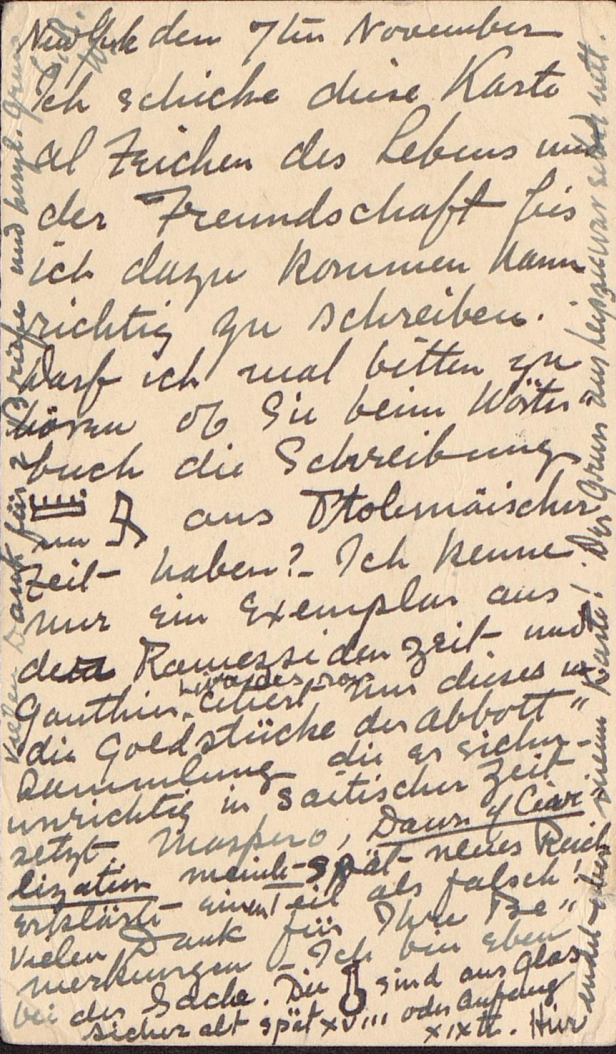 New York den 7ten November
Ich schicke diese Karte
al Zeichen des Lebens und
der Freundschaft bis
ich dazu kommen kann
richtig zu schreiben.
Darf ich mal bitten zu
hören ob Sie beim Wörter-
buch die Schreibung
aus Ptolemäischer
Zeit haben? - Ich kenne
nur ein Exemplar aus
der Ramessiden Zeit und
Gauthier, Livre des rois
citiert nur dieses u
"die Goldstücke der Abbott"
Sammlung die er sicher
unrichtig in Saitischer Zeit
setzt. Maspero, Dawn of Civi-
lization meint spät-neues Reich
erklärt einen Teil als falsch!
Vielen Dank für Ihre Be-
merkungen - Ich bin eben
bei der Sache. Die sind aus Glas
sicher alt spät XVIII oder Anfang
XIXte. Hier
endet aber meine Karte! Der Gruss aus Leipzig war sehr nett.
Vielen Dank für Briefe und herzl. Gruss